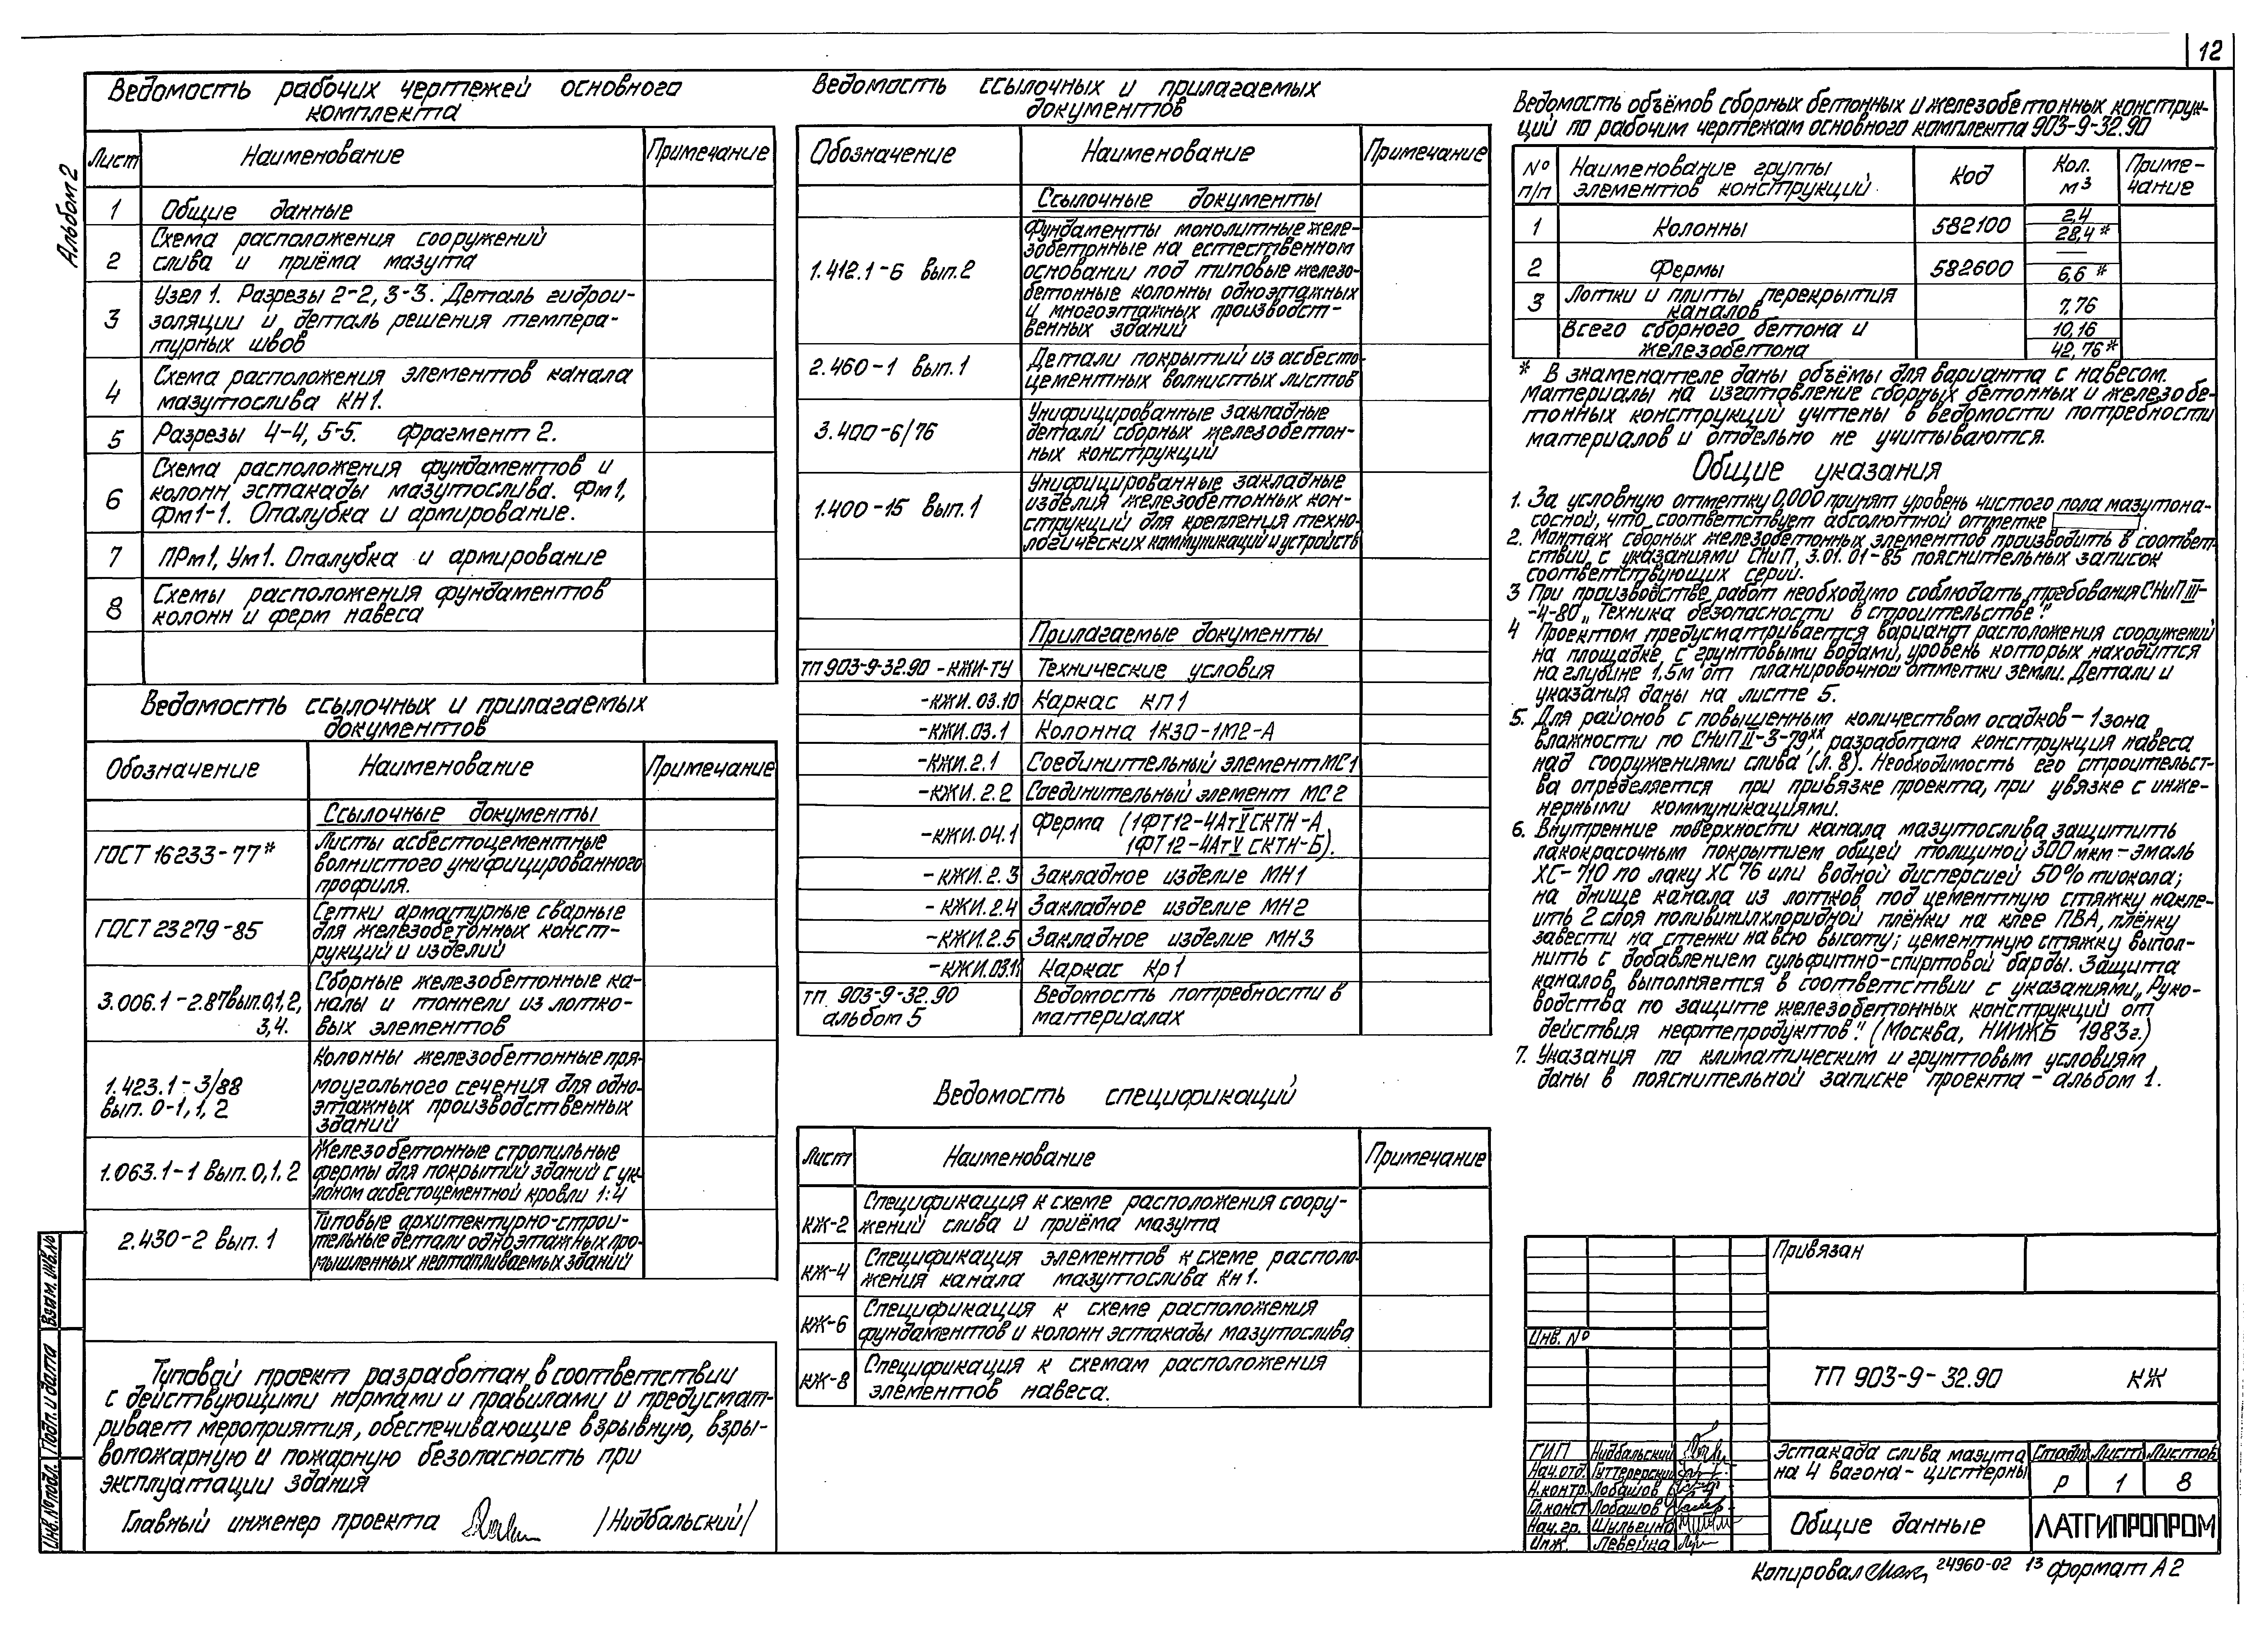 12
Альбом 2
Ведомость рабочих чертежей основного
комплекта
Лист Наименование Примечание
1 Общие данные
Схема расположения сооружений
2 слива и приёма мазута
Узел 1. Разрезы 2-2, 3-3. Деталь гидрои-
3 золяции и деталь решения темпера-
турных швов
Схема расположения элементов канала
4 мазутослива КН1.
5 Разрезы 4-4, 5-5. Фрагмент 2.
Схема расположения фундаментов и
6 колонн эстакады мазутослива. Фм1,
Фм1-1. Опалубка и армирование.
7 ПРм1, Ум1. Опалубка и армирование
Схемы расположения фундаментов
8 колонн и ферм навеса
Ведомость ссылочных и прилагаемых
документов
Обозначение Наименование Примечание
Ссылочные документы
ГОСТ 16233-77* Листы асбестоцементные
волнистого унифицированного
профиля.
ГОСТ 23279-85 Сетки арматурные сварные
для железобетонных конст-
рукций и изделий
Сборные железобетонные ка-
3.006.1-2.87 вып.0,1,2, налы и тоннели из лотко-
3,4. вых элементов
Колонны железобетонные пря-
1.423.1-3/88 моугольного сечения для одно-
вып. 0-1, 1, 2 этажных производственных
зданий
Железобетонные стропильные
1.063.1-1 Вып. 0,1.2 фермы для покрытий зданий с ук-
лоном асбестоцементной кровли 1:4
Типовые архитектурно-строи-
2.430-2 вып. 1 тельные детали одноэтажных про-
мышленных неотапливаемых зданий
Типовой проект разработан в соответствии
с действующими нормами и правилами и предусмат-
ривает мероприятия, обеспечивающие взрывную, взры-
вопожарную и пожарную безопасность при
эксплуатации здания
Главный инженер проекта /Нидбальский/
Взам. инв.№
Подп. и дата
Инв. № подл.
Ведомость ссылочных и прилагаемых
документов
Обозначение Наименование Примечание
Ссылочные документы
Фундаменты монолитные желе-
зобетонные на естественном
1.412.1-6 вып.2 основании под типовые железо-
бетонные колонны одноэтажных
и многоэтажных производст-
венных зданий
2.460-1 вып.1 Детали покрытий из асбесто-
цементных волнистых листов
Унифицированные закладные
3.400-6/76 детали сборных железобетон-
ных конструкций
Унифицированные закладные
1.400-15 вып.1 изделия железобетонных кон-
струкций для крепления техно-
логических коммуникаций и устройств
Прилагаемые документы
ТП 903-9-32.90 -КЖИ-ТУ Технические условия
-КЖИ.03.10 Каркас КП1
-КЖИ.03.1 Колонна 1К30-1М2-А
-КЖИ.2.1 Соединительный элемент МС1
-КЖИ.2.2 Соединительный элемент МС2
-КЖИ.04.1 Ферма (1ФТ12-4АтV СКТН-А,
1ФТ12-4АтV СКТН-Б).
-КЖИ.2.3 Закладное изделие МН1
-КЖИ.2.4 Закладное изделие МН2
-КЖИ.2.5 Закладное изделие МН3
-КЖИ.03.11 Каркас Кр1
ТП 903-9-32.90 Ведомость потребности в
альбом 5 материалах
Ведомость спецификаций
Лист Наименование Примечание
Спецификация к схеме расположения соору-
КЖ-2 жений слива и приёма мазута
Спецификация элементов к схеме располо-
КЖ-4 жения канала мазутослива Кн1.
Спецификация к схеме расположения
КЖ-6 фундаментов и колонн эстакады мазутослива
Спецификация к схемам расположения
КЖ-8 элементов навеса.
Ведомость объёмов сборных бетонных и железобетонных конструк-
ций по рабочим чертежам основного комплекта 903-9-32.90
№ п/п Наименование группы элементов конструкций Код Кол. м3 Приме-чание
1 Колонны 582100 2,4
28,4*
2 Фермы 582600 —
6,6*
3 Лотки и плиты перекрытия
каналов 7,76
Всего сборного бетона и 10,16
железобетона 42,76*
* В знаменателе даны объёмы для варианта с навесом.
Материалы на изготовление сборных бетонных и железобе-
тонных конструкций учтены в ведомости потребности
материалов и отдельно не учитываются.
Общие указания
1. За условную отметку 0,000 принят уровень чистого пола мазутона-
сосной, что соответствует абсолютной отметке
2. Монтаж сборных железобетонных элементов производить в соответ-
ствии с указаниями СНиП, 3.01.01-85 пояснительных записок
соответствующих серий.
3 При производстве работ необходимо соблюдать требования СНиП III-
-4-80 „Техника безопасности в строительстве".
4 Проектом предусматривается вариант расположения сооружений
на площадке с грунтовыми водами, уровень которых находится
на глубине 1,5м от планировочной отметки земли. Детали и
указания даны на листе 5.
5. Для районов с повышенным количеством осадков - 1 зона
влажности по СНиП II-3-79**, разработана конструкция навеса
над сооружениями слива (л. 8). Необходимость его строительст-
ва определяется при привязке проекта, при увязке с инже-
нерными коммуникациями.
6. Внутренние поверхности канала мазутослива защитить
лакокрасочным покрытием общей толщиной 300 мкм - эмаль
ХС-710 по лаку ХС 76 или водной дисперсией 50% тиокола;
на днище канала из лотков под цементную стяжку накле-
ить 2 слоя поливинилхлоридной плёнки на клее ПВА, плёнку
завести на стенки на всю высоту; цементную стяжку выпол-
нить с добавлением сульфитно-спиртовой барды. Защита
каналов выполняется в соответствии с указаниями „Руко-
водства по защите железобетонных конструкций от
действия нефтепродуктов". (Москва, НИИЖБ 1983г.)
7. Указания по климатическим и грунтовым условиям
даны в пояснительной записке проекта - альбом 1.
Привязан
Инв. №
ТП 903-9-32.90 КЖ
ГИП Нидбальский
Нач.отд. Гуттерерский
Н.контр. Лобашов
Гл.конст Лобашов
Нач. гр. Шульгина
Инж. Левейка
Эстакада слива мазута
на 4 вагона-цистерны
Стадия Лист Листов
Р 1 8
Общие данные
ЛАТГИПРОПРОМ
Копировал 24960-02 13 формат А2